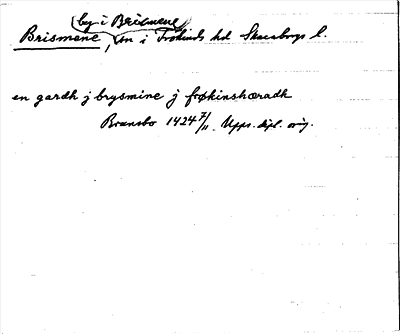 (by i Brismene)
Brismene, sn i Frökinds hd Skaraborgs l.
en gardh j brysmine j frøkinshæradh
Bransbo 1424 7/11. Upps. dipl. orig.